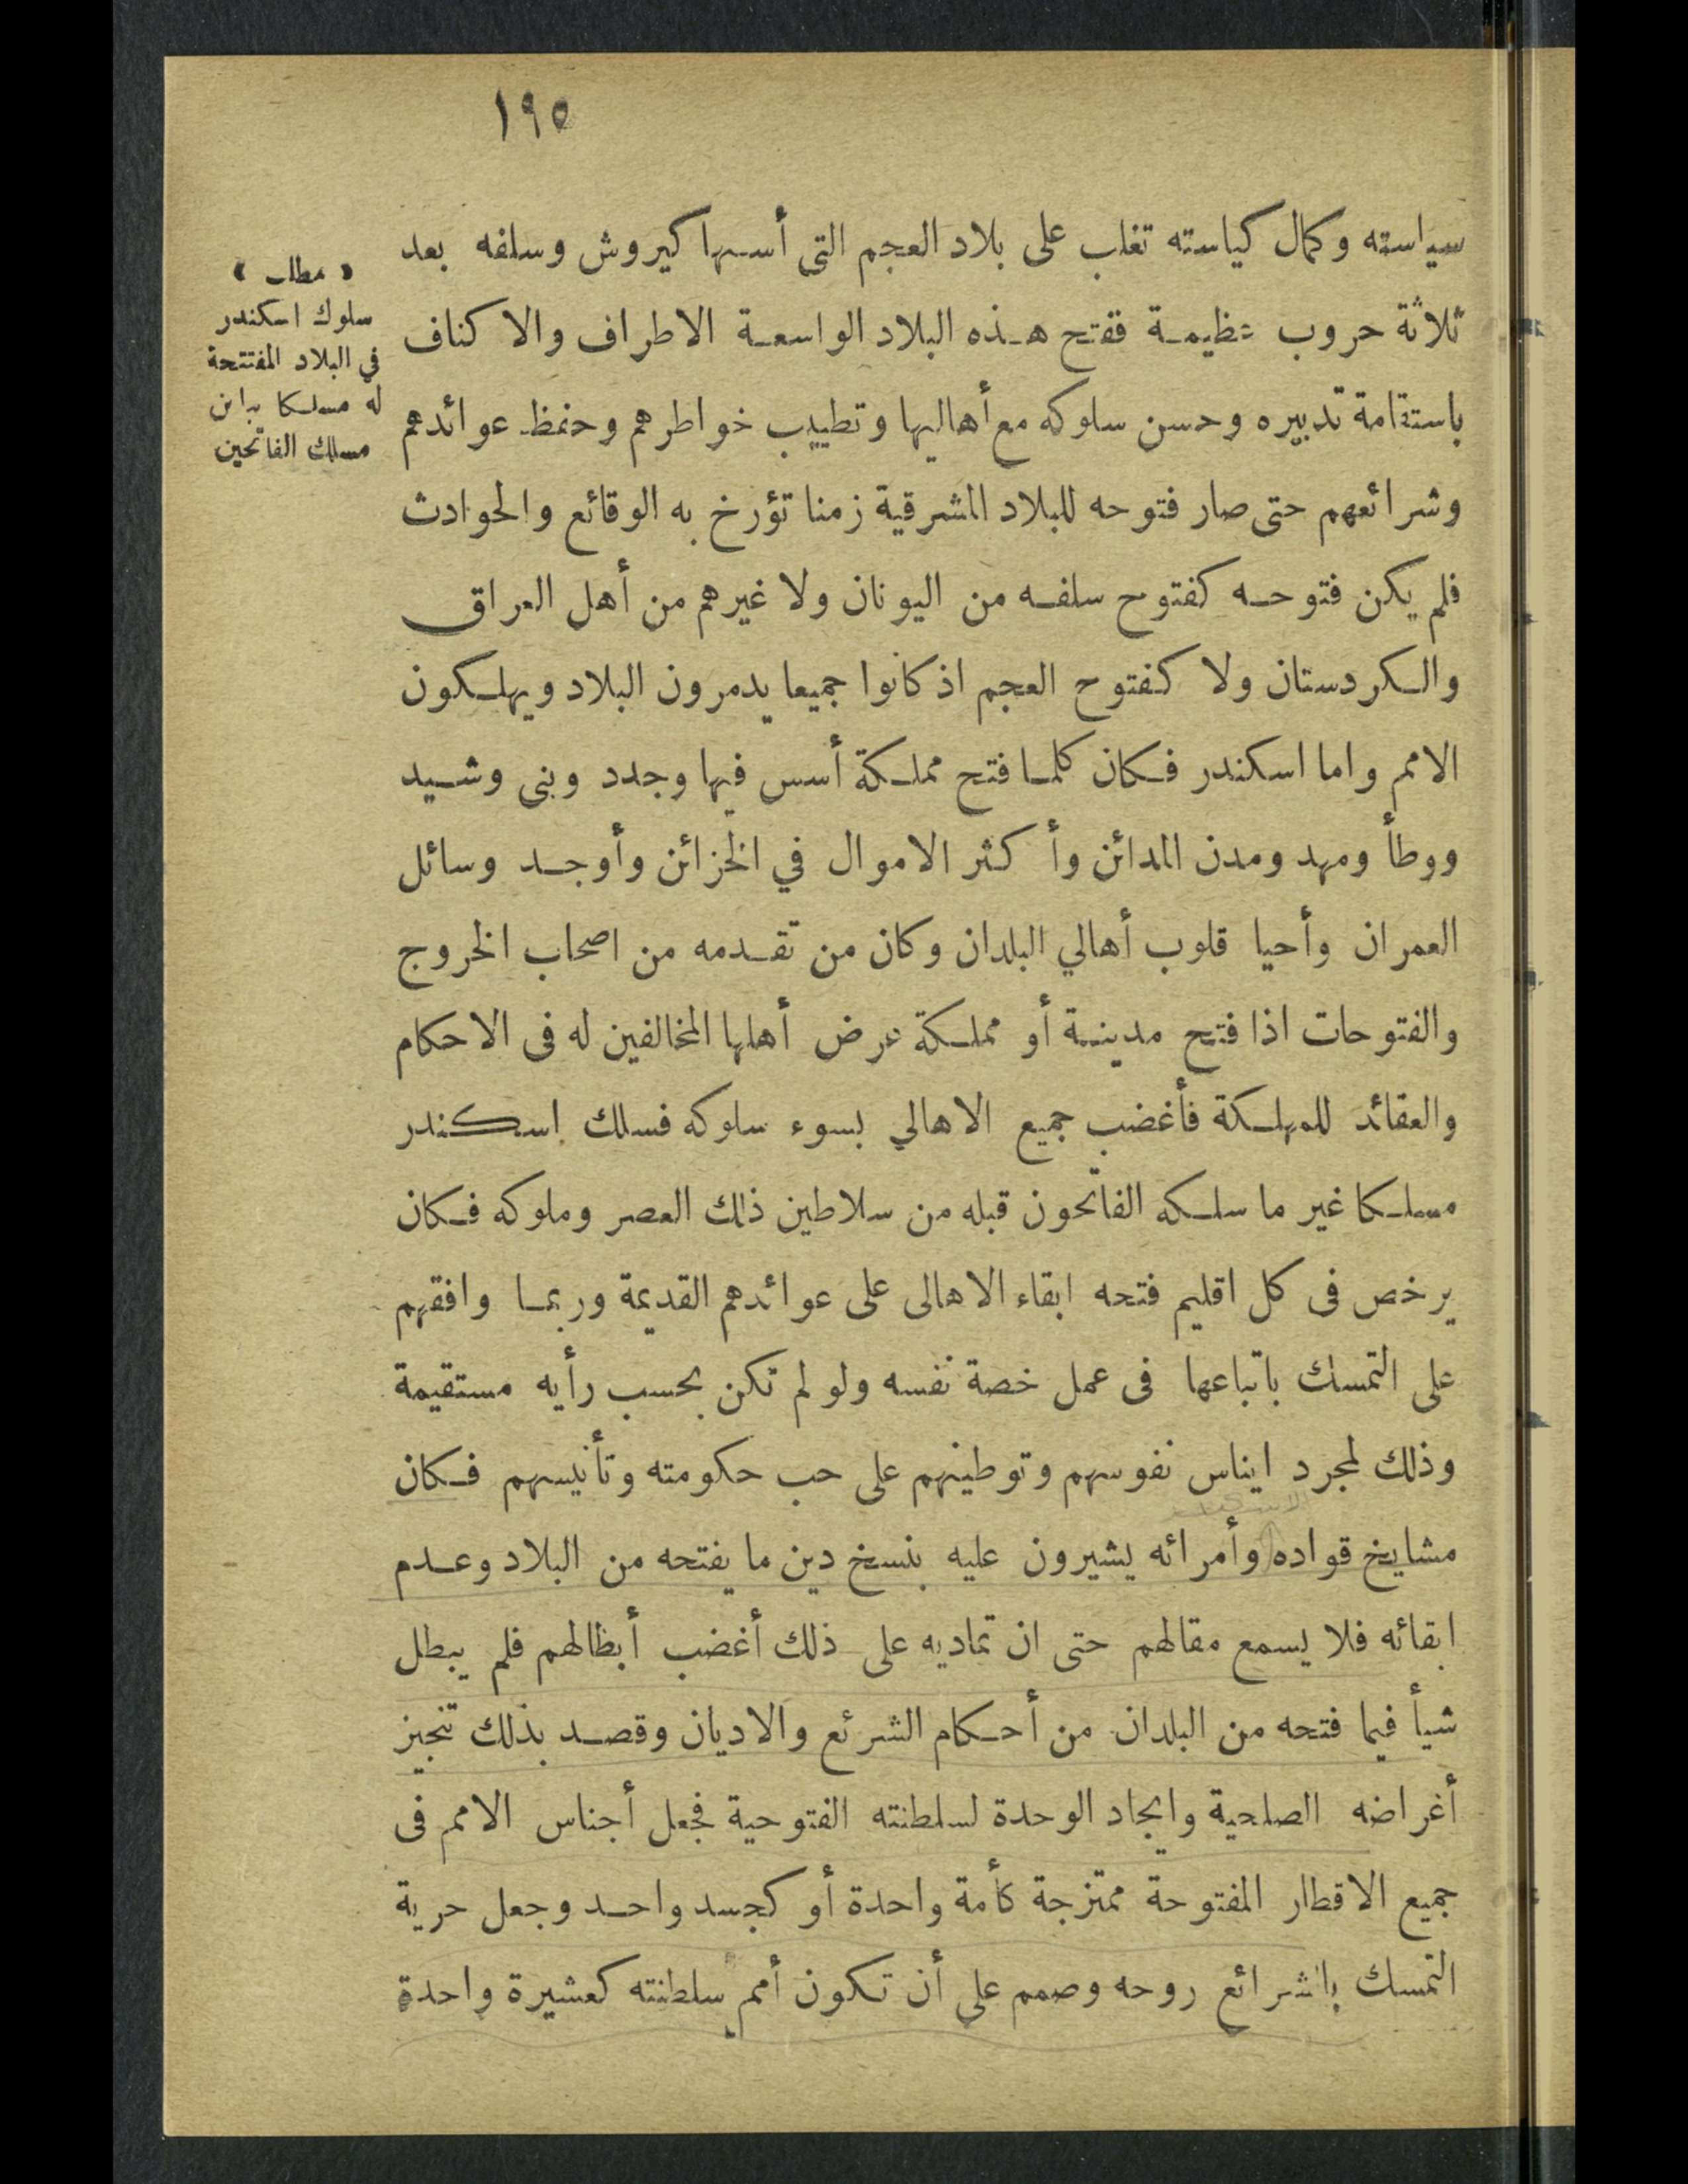 ١٩٥
سياسته وكمال كياسته تغلب على بلاد العجم التى أسسها كيروش وسلفه بعد
ثلاثة حروب عظيمة ففتح هذه البلاد الواسعة الاطراف والاكناف
باستقامة تدبيره وحسن سلوكه مع أهاليها وتطييب خواطرهم وحفظ عوائدهم
وشرائعهم حتى صار فتوحه للبلاد المشرقية زمنا تؤرخ به الوقائع والحوادث
فلم يكن فتوحه كفتوح سلفه من اليونان ولا غيرهم من أهل العراق
والكردستان ولا كفتوح العجم اذ كانوا جميعا يدمرون البلاد ويهلكون
الامم واما اسكندر فكان كلما فتح مملكة أسس فيها وجدد وبنى وشيد
ووطأ ومهد ومدن المدائن وأكثر الاموال في الخزائن وأوجد وسائل
العمران وأحيا قلوب أهالي البلدان وكان من تقدمه من اصحاب الخروج
والفتوحات اذا فتح مدينة أو مملكة عرض أهلها المخالفين له فى الاحكام
والعقائد للمهلكة فأغضب جميع الاهالي بسوء سلوكه فسلك اسكندر
مسلكا غير ما سلكه الفاتحون قبله من سلاطين ذلك العصر وملوكه فكان
يرخص فى كل اقليم فتحه ابقاء الاهالى على عوائدهم القديمة وربما وافقهم
على التمسك باتباعها فى عمل خصة نفسه ولو لم تكن بحسب رأيه مستقيمة
وذلك لمجرد ايناس نفوسهم وتوطينهم على حب حكومته وتأنيسهم فكان
مشايخ قواده وأمرائه يشيرون عليه بنسخ دين ما يفتحه من البلاد وعدم
ابقائه فلا يسمع مقالهم حتى ان تماديه على ذلك أغضب أبطالهم فلم يبطل
شيأ فيما فتحه من البلدان من أحكام الشرئع والاديان وقصد بذلك تنجيز
أغراضه الصلحية وايجاد الوحدة لسلطنته الفتوحية فجعل أجناس الامم فى
جميع الاقطار المفتوحة ممتزجة كأمة واحدة أو كجسد واحد وجعل حرية
التمسك بالشرائع روحه وصمم على أن تكون أمم سلطنته كعشيرة واحدة
﴿ مطلب ﴾
سلوك اسكندر
في البلاد المفتتحة
له مسلكا يباين
مسلك الفاتحين